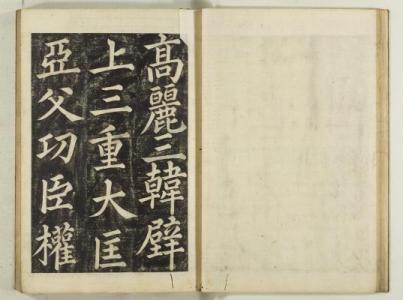 高麗三韓壁
上三重大匡
亞父功臣權